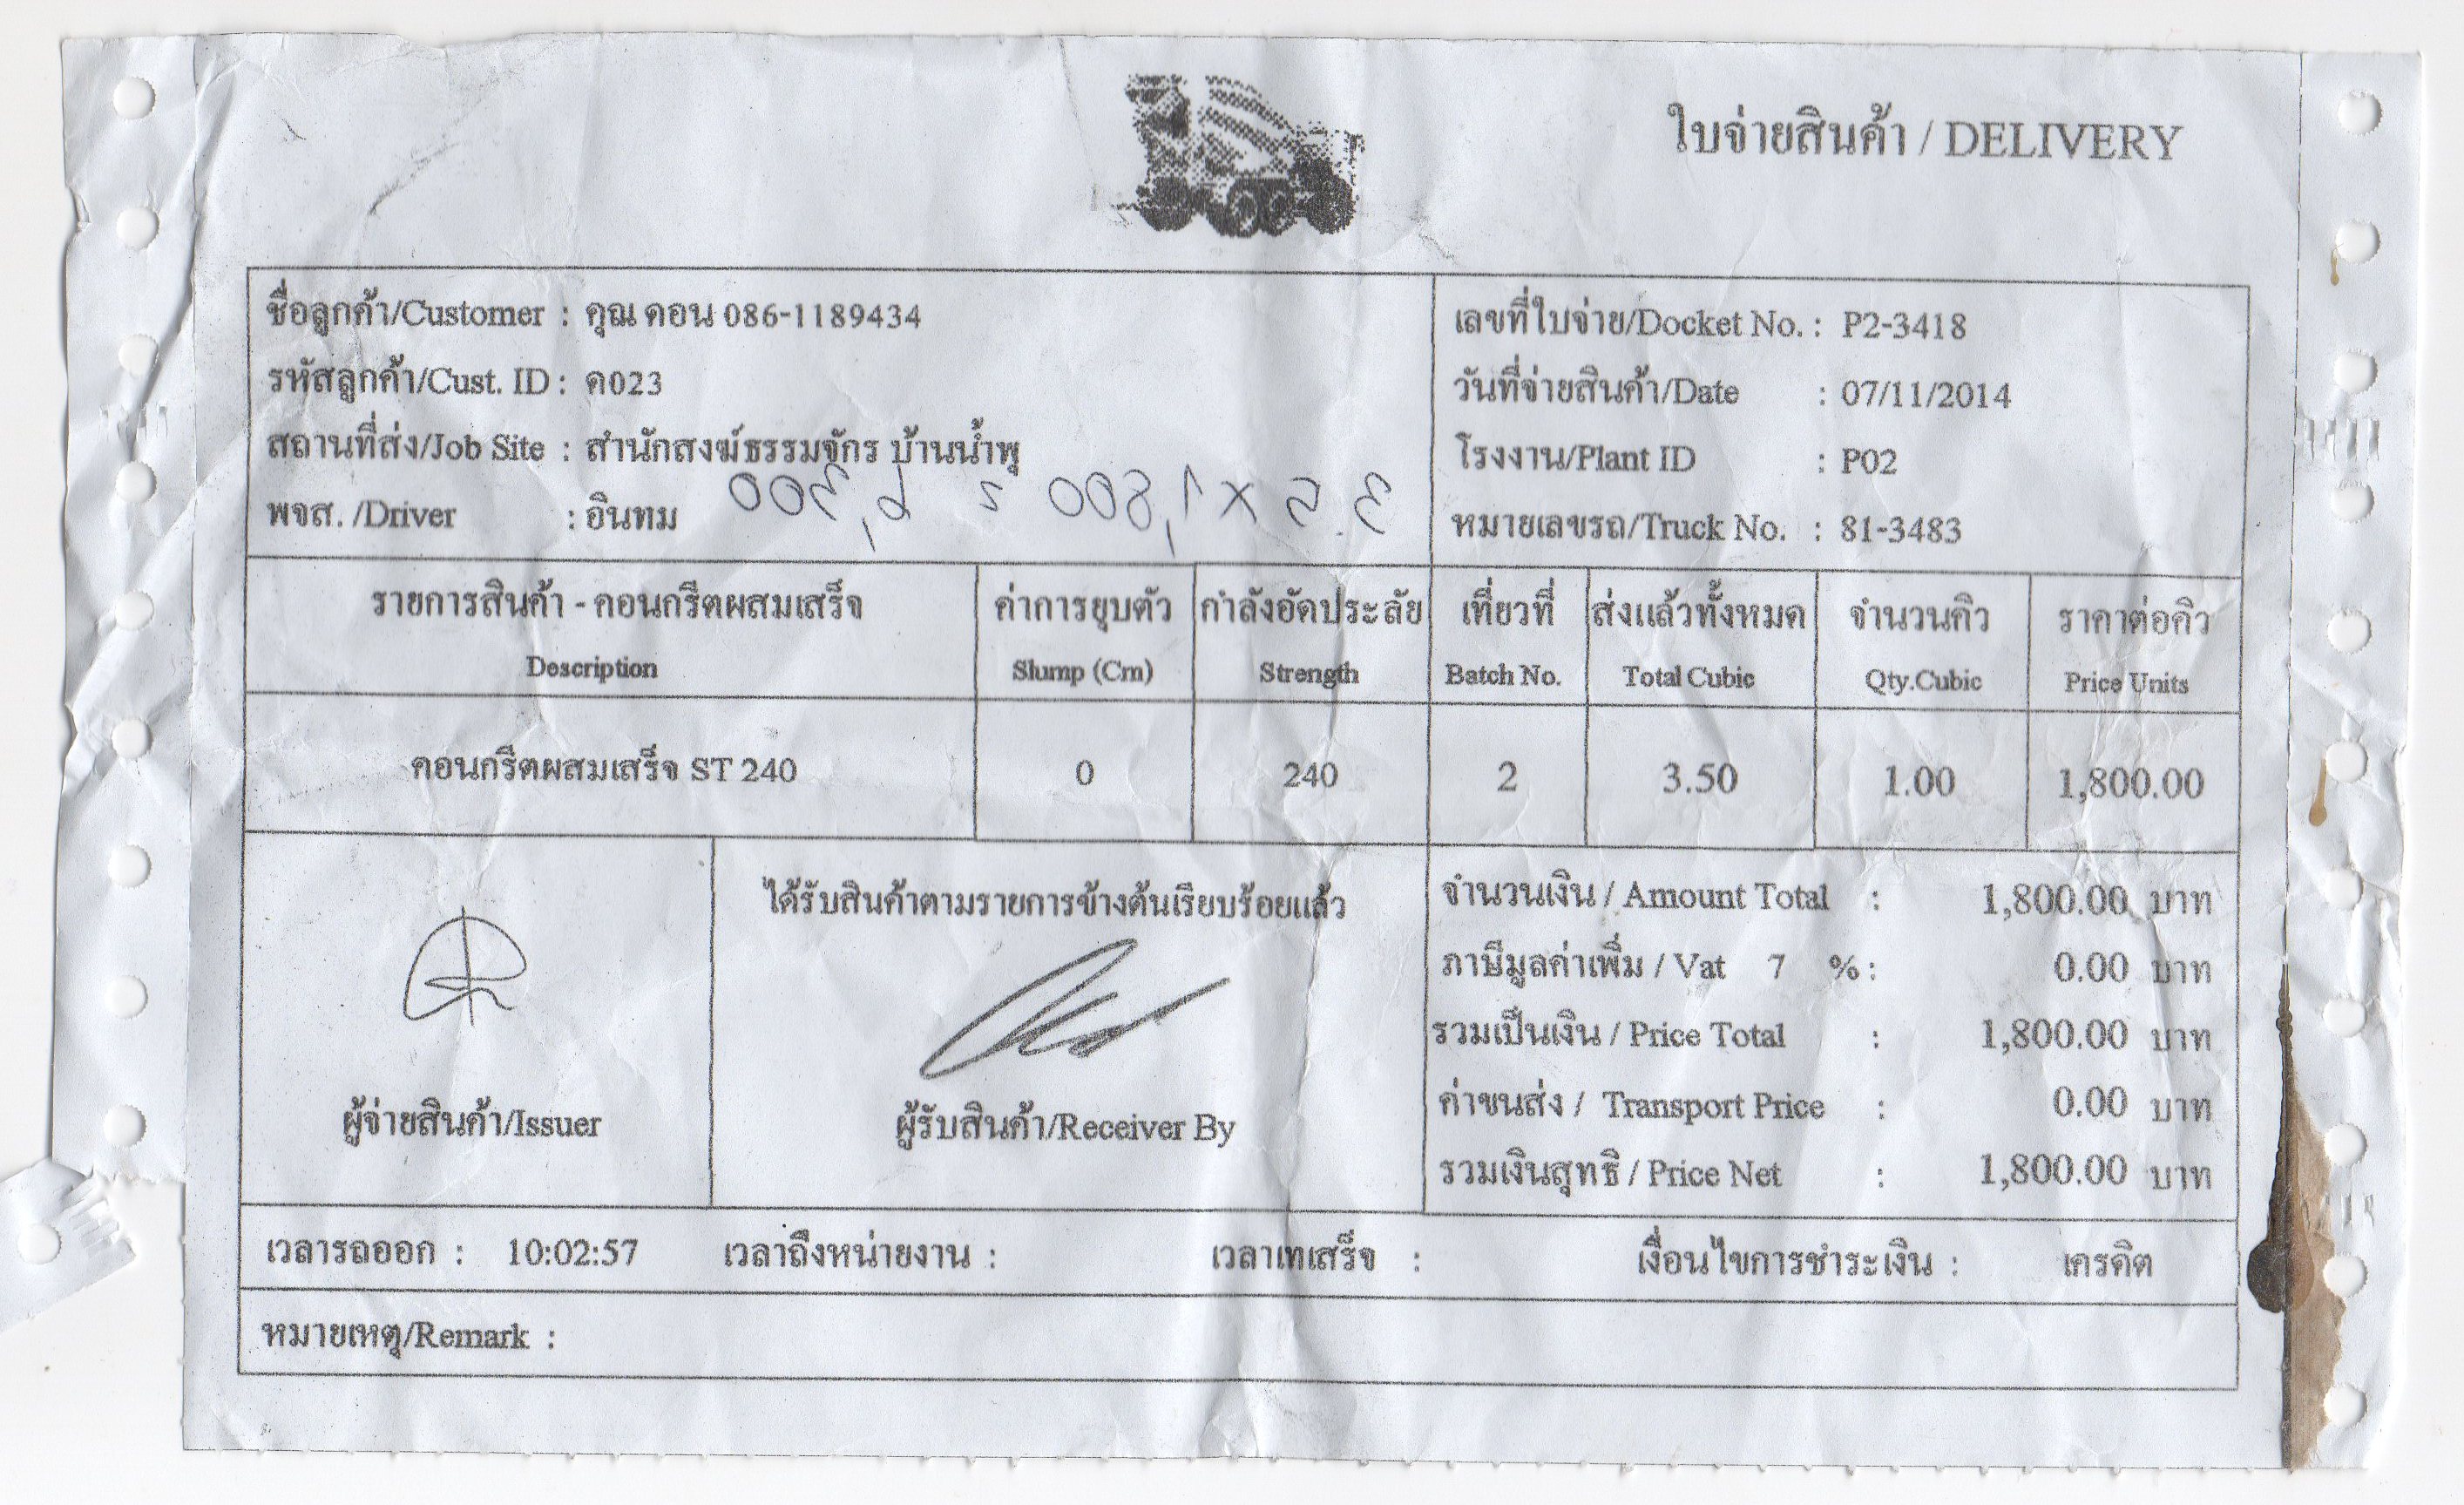 ใบจ่ายสินค้า / DELIVERY
ชื่อลูกค้า/Customer : คุณ คอน 086-1189434
รหัสลูกค้า/Cust. ID : ค023
สถานที่ส่ง/Job Site : สำนักสงฆ์ธรรมจักร บ้านน้ำพุ
พจส. /Driver : อินทม
3.5 x 1,800 = 6,300
เลขที่ใบจ่าย/Docket No. : P2-3418
วันที่จ่ายสินค้า/Date : 07/11/2014
โรงงาน/Plant ID : P02
หมายเลขรถ/Truck No. : 81-3483
รายการสินค้า - คอนกรีตผสมเสร็จ ค่าการยุบตัว กำลังอัดประลัย เที่ยวที่ ส่งแล้วทั้งหมด จำนวนคิว ราคาต่อคิว
Description Slump (Cm) Strength Batch No. Total Cubic Qty.Cubic Price Units
คอนกรีตผสมเสร็จ ST 240 0 240 2 3.50 1.00 1,800.00
ได้รับสินค้าตามรายการข้างต้นเรียบร้อยแล้ว
ผู้จ่ายสินค้า/Issuer ผู้รับสินค้า/Receiver By
จำนวนเงิน / Amount Total : 1,800.00 บาท
ภาษีมูลค่าเพิ่ม / Vat 7 % : 0.00 บาท
รวมเป็นเงิน / Price Total : 1,800.00 บาท
ค่าขนส่ง / Transport Price : 0.00 บาท
รวมเงินสุทธิ / Price Net : 1,800.00 บาท
เวลารถออก : 10:02:57 เวลาถึงหน่วยงาน : เวลาเทเสร็จ : เงื่อนไขการชำระเงิน : เครดิต
หมายเหตุ/Remark :